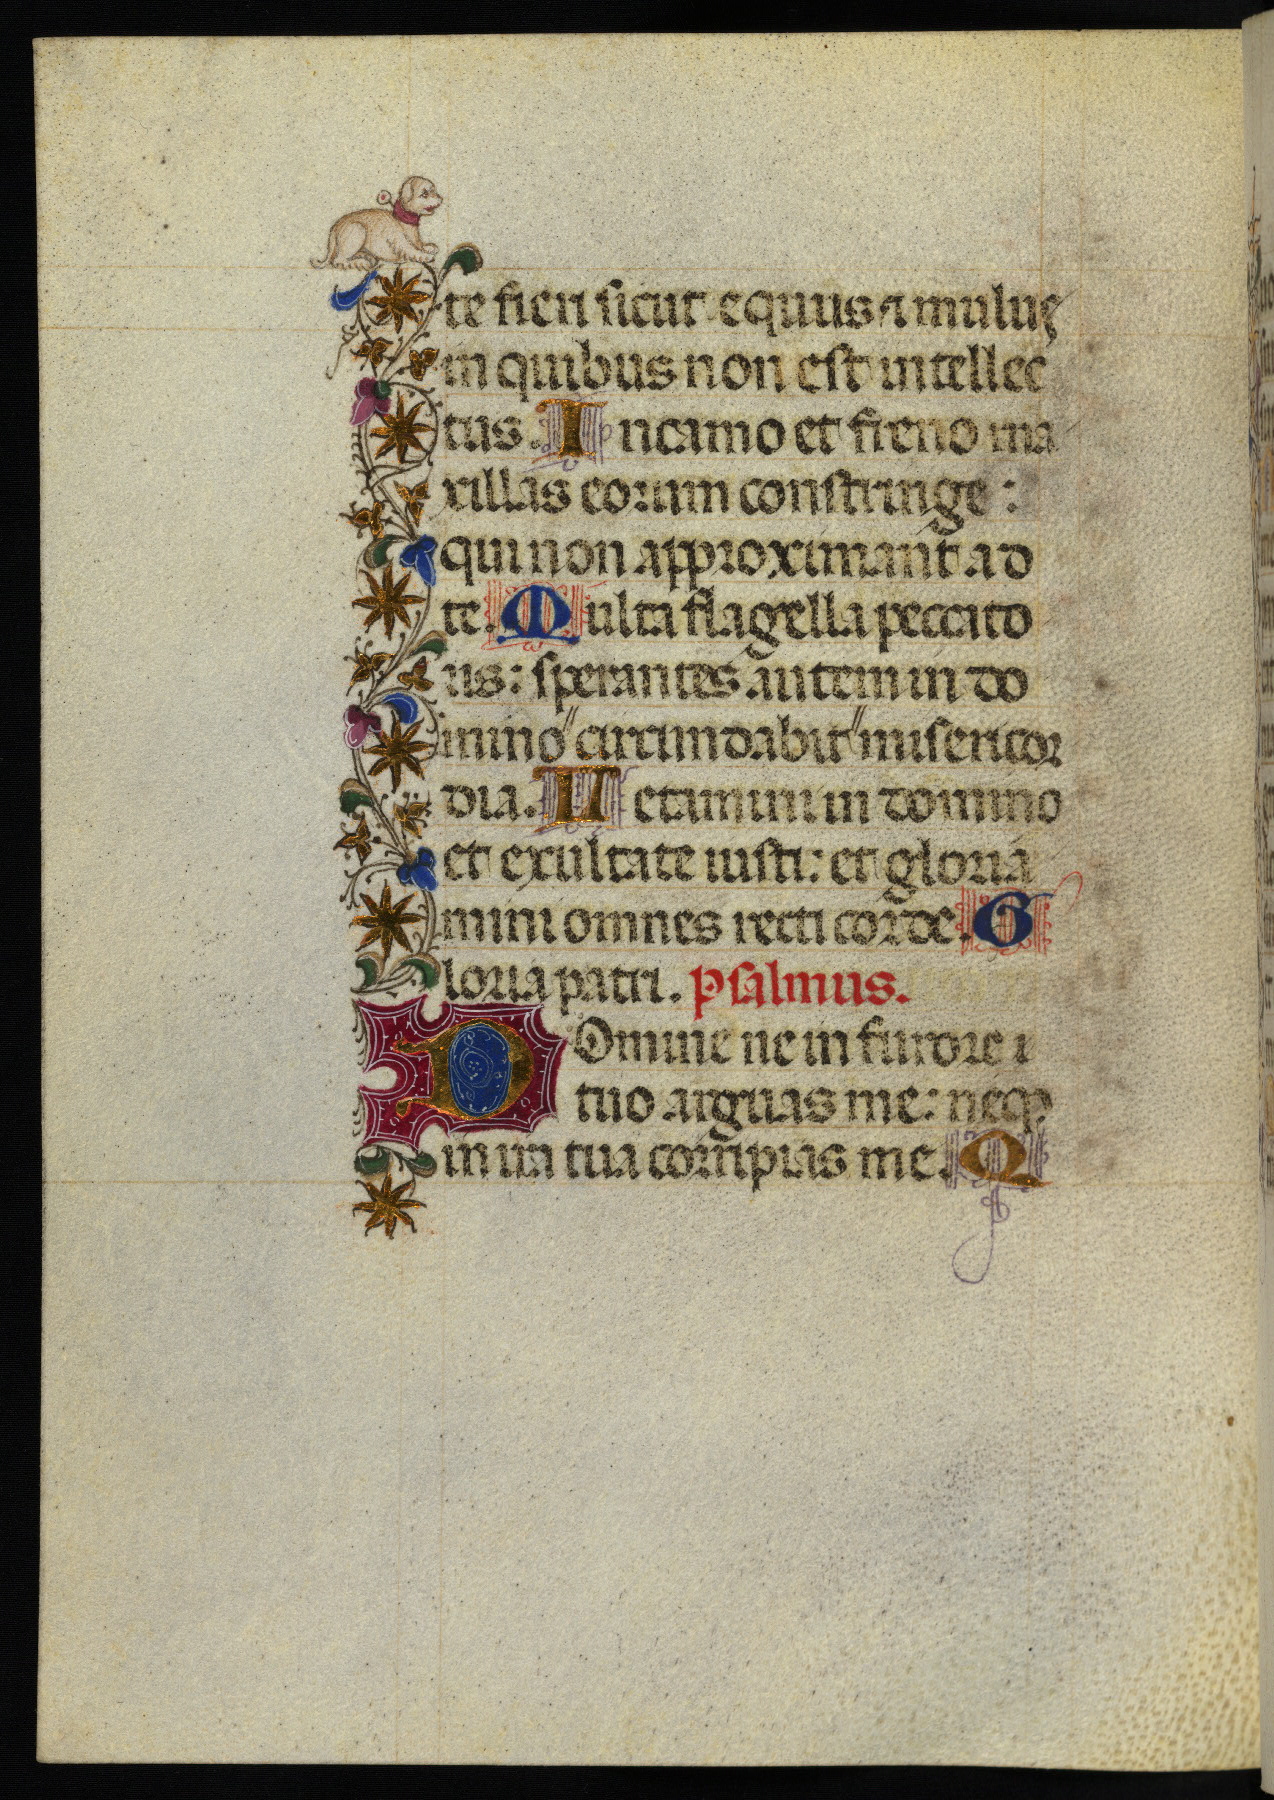 te fieri sicut equus ⁊ mulus
in quibus non est intellec
tus. In camo et freno ma
xillas eorum constringe:
qui non approximant ad
te. Multa flagella peccato
ris: sperantes autem in do
mino" circumdabit" misericor
dia. Letamini in domino
et exultate iusti: et gloria
mini omnes recti corde. G
loria patri. psalmus.
Domine ne in furore i
tuo arguas me: neqꝫ
in ira tua corripias me. Q